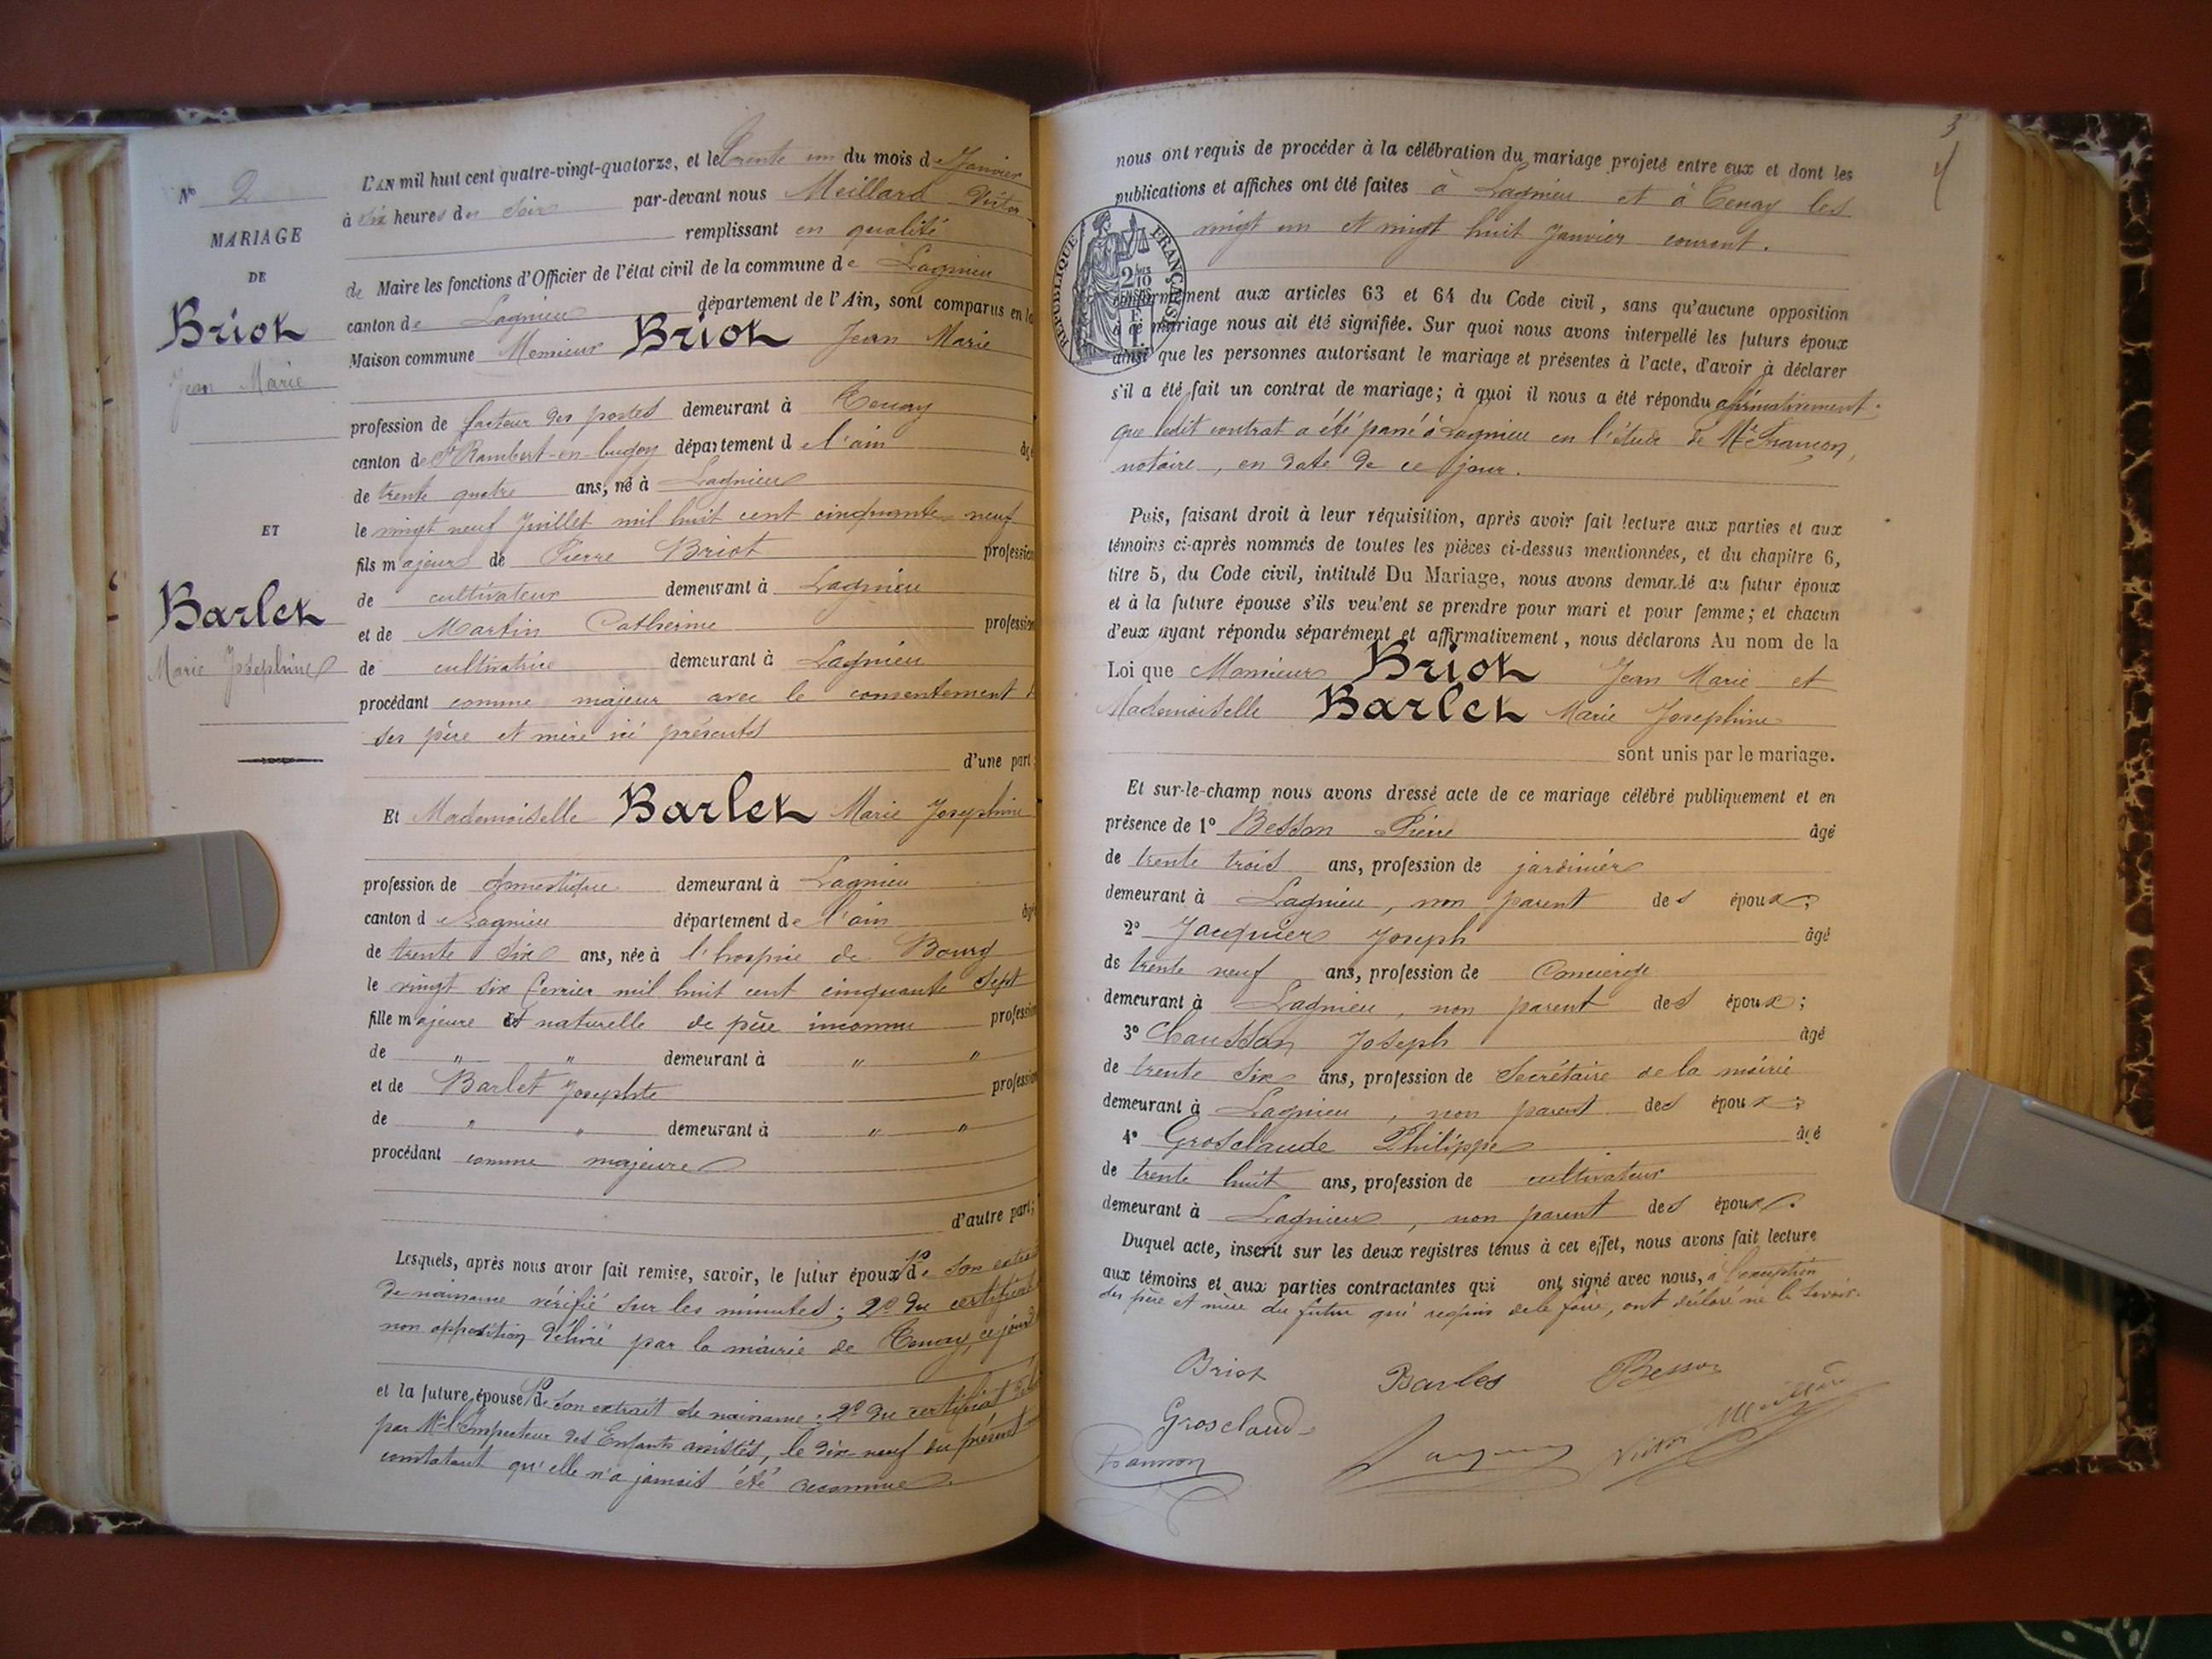 N° 2
MARIAGE
DE
Briot
Jean Marie
ET
Barlet
Marie Josephine
L'AN mil huit cent quatre-vingt-quatorze, et le trente un du mois de Janvier
à six heures du soir par-devant nous Meillard Victor
remplissant en qualité
de Maire les fonctions d'Officier de l'état civil de la commune de Lagnieu
canton de Lagnieu département de l'Ain, sont comparus en la
Maison commune Monsieur Briot Jean Marie
profession de facteur des postes demeurant à Tenay
canton de St Rambert-en-bugey département de l'ain âgé
de trente quatre ans, né à Lagnieu
le vingt neuf Juillet mil huit cent cinquante neuf
fils majeur de Pierre Briot profession
de cultivateur demeurant à Lagnieu
et de Martin Catherine profession
de cultivatrice demeurant à Lagnieu
procédant comme majeur avec le consentement
ses père et mère ici présents
d'une part;
Et Mademoiselle Barlet Marie Josephine
profession de domestique demeurant à Lagnieu
canton de Lagnieu département de l'ain âgé
de trente six ans, née à l'hospice de Bourg
le vingt six fevrier mil huit cent cinquante sept
fille majeure et naturelle de père inconnu profession
de " " demeurant à " "
et de Barlet Josephte profession
de " " demeurant à " "
procédant comme majeure
d'autre part;
Lesquels, après nous avoir fait remise, savoir, le futur époux 1° de son extrait
de naissance vérifié sur les minutes; 2° du certificat
non opposition délivré par la mairie de Tenay, ce jour
et la future épouse 1° de son extrait de naissance; 2° du certificat
par Mr l'Inspecteur des Enfants assistés, le dix neuf du présent
constatant qu'elle n'a jamais été reconnue
3
nous ont requis de procéder à la célébration du mariage projeté entre eux et dont les
publications et affiches ont été faites à Lagnieu et à Tenay les
vingt un et vingt huit Janvier courant.
RÉPUBLIQUE FRANÇAISE
2/10
conformément aux articles 63 et 64 du Code civil, sans qu'aucune opposition
à ce mariage nous ait été signifiée. Sur quoi nous avons interpellé les futurs époux
ainsi que les personnes autorisant le mariage et présentes à l'acte, d'avoir à déclarer
s'il a été fait un contrat de mariage; à quoi il nous a été répondu affirmativement.
que ledit contrat a été passé à Lagnieu en l'étude de Me Francon,
notaire, en date de ce jour.
Puis, faisant droit à leur réquisition, après avoir fait lecture aux parties et aux
témoins ci-après nommés de toutes les pièces ci-dessus mentionnées, et du chapitre 6,
titre 5, du Code civil, intitulé Du Mariage, nous avons demandé au futur époux
et à la future épouse s'ils veulent se prendre pour mari et pour femme; et chacun
d'eux ayant répondu séparément et affirmativement, nous déclarons Au nom de la
Loi que Monsieur Briot Jean Marie et
Mademoiselle Barlet Marie Josephine
sont unis par le mariage.
Et sur-le-champ nous avons dressé acte de ce mariage célébré publiquement et en
présence de 1° Besson Pierre âgé
de trente trois ans, profession de jardinier
demeurant à Lagnieu, non parent des époux;
2° Jacquier Joseph âgé
de trente neuf ans, profession de Concierge
demeurant à Lagnieu, non parent des époux;
3° Chausson Joseph âgé
de trente six ans, profession de Secrétaire de la mairie
demeurant à Lagnieu, non parent des époux;
4° Grosclaude Philippe âgé
de trente huit ans, profession de cultivateur
demeurant à Lagnieu, non parent des époux.
Duquel acte, inscrit sur les deux registres tenus à cet effet, nous avons fait lecture
aux témoins et aux parties contractantes qui ont signé avec nous, à l'exception
des père et mère du futur qui requis de le faire, ont déclaré ne le savoir.
Briot Barlet Besson
Grosclaude
Victor Meillard